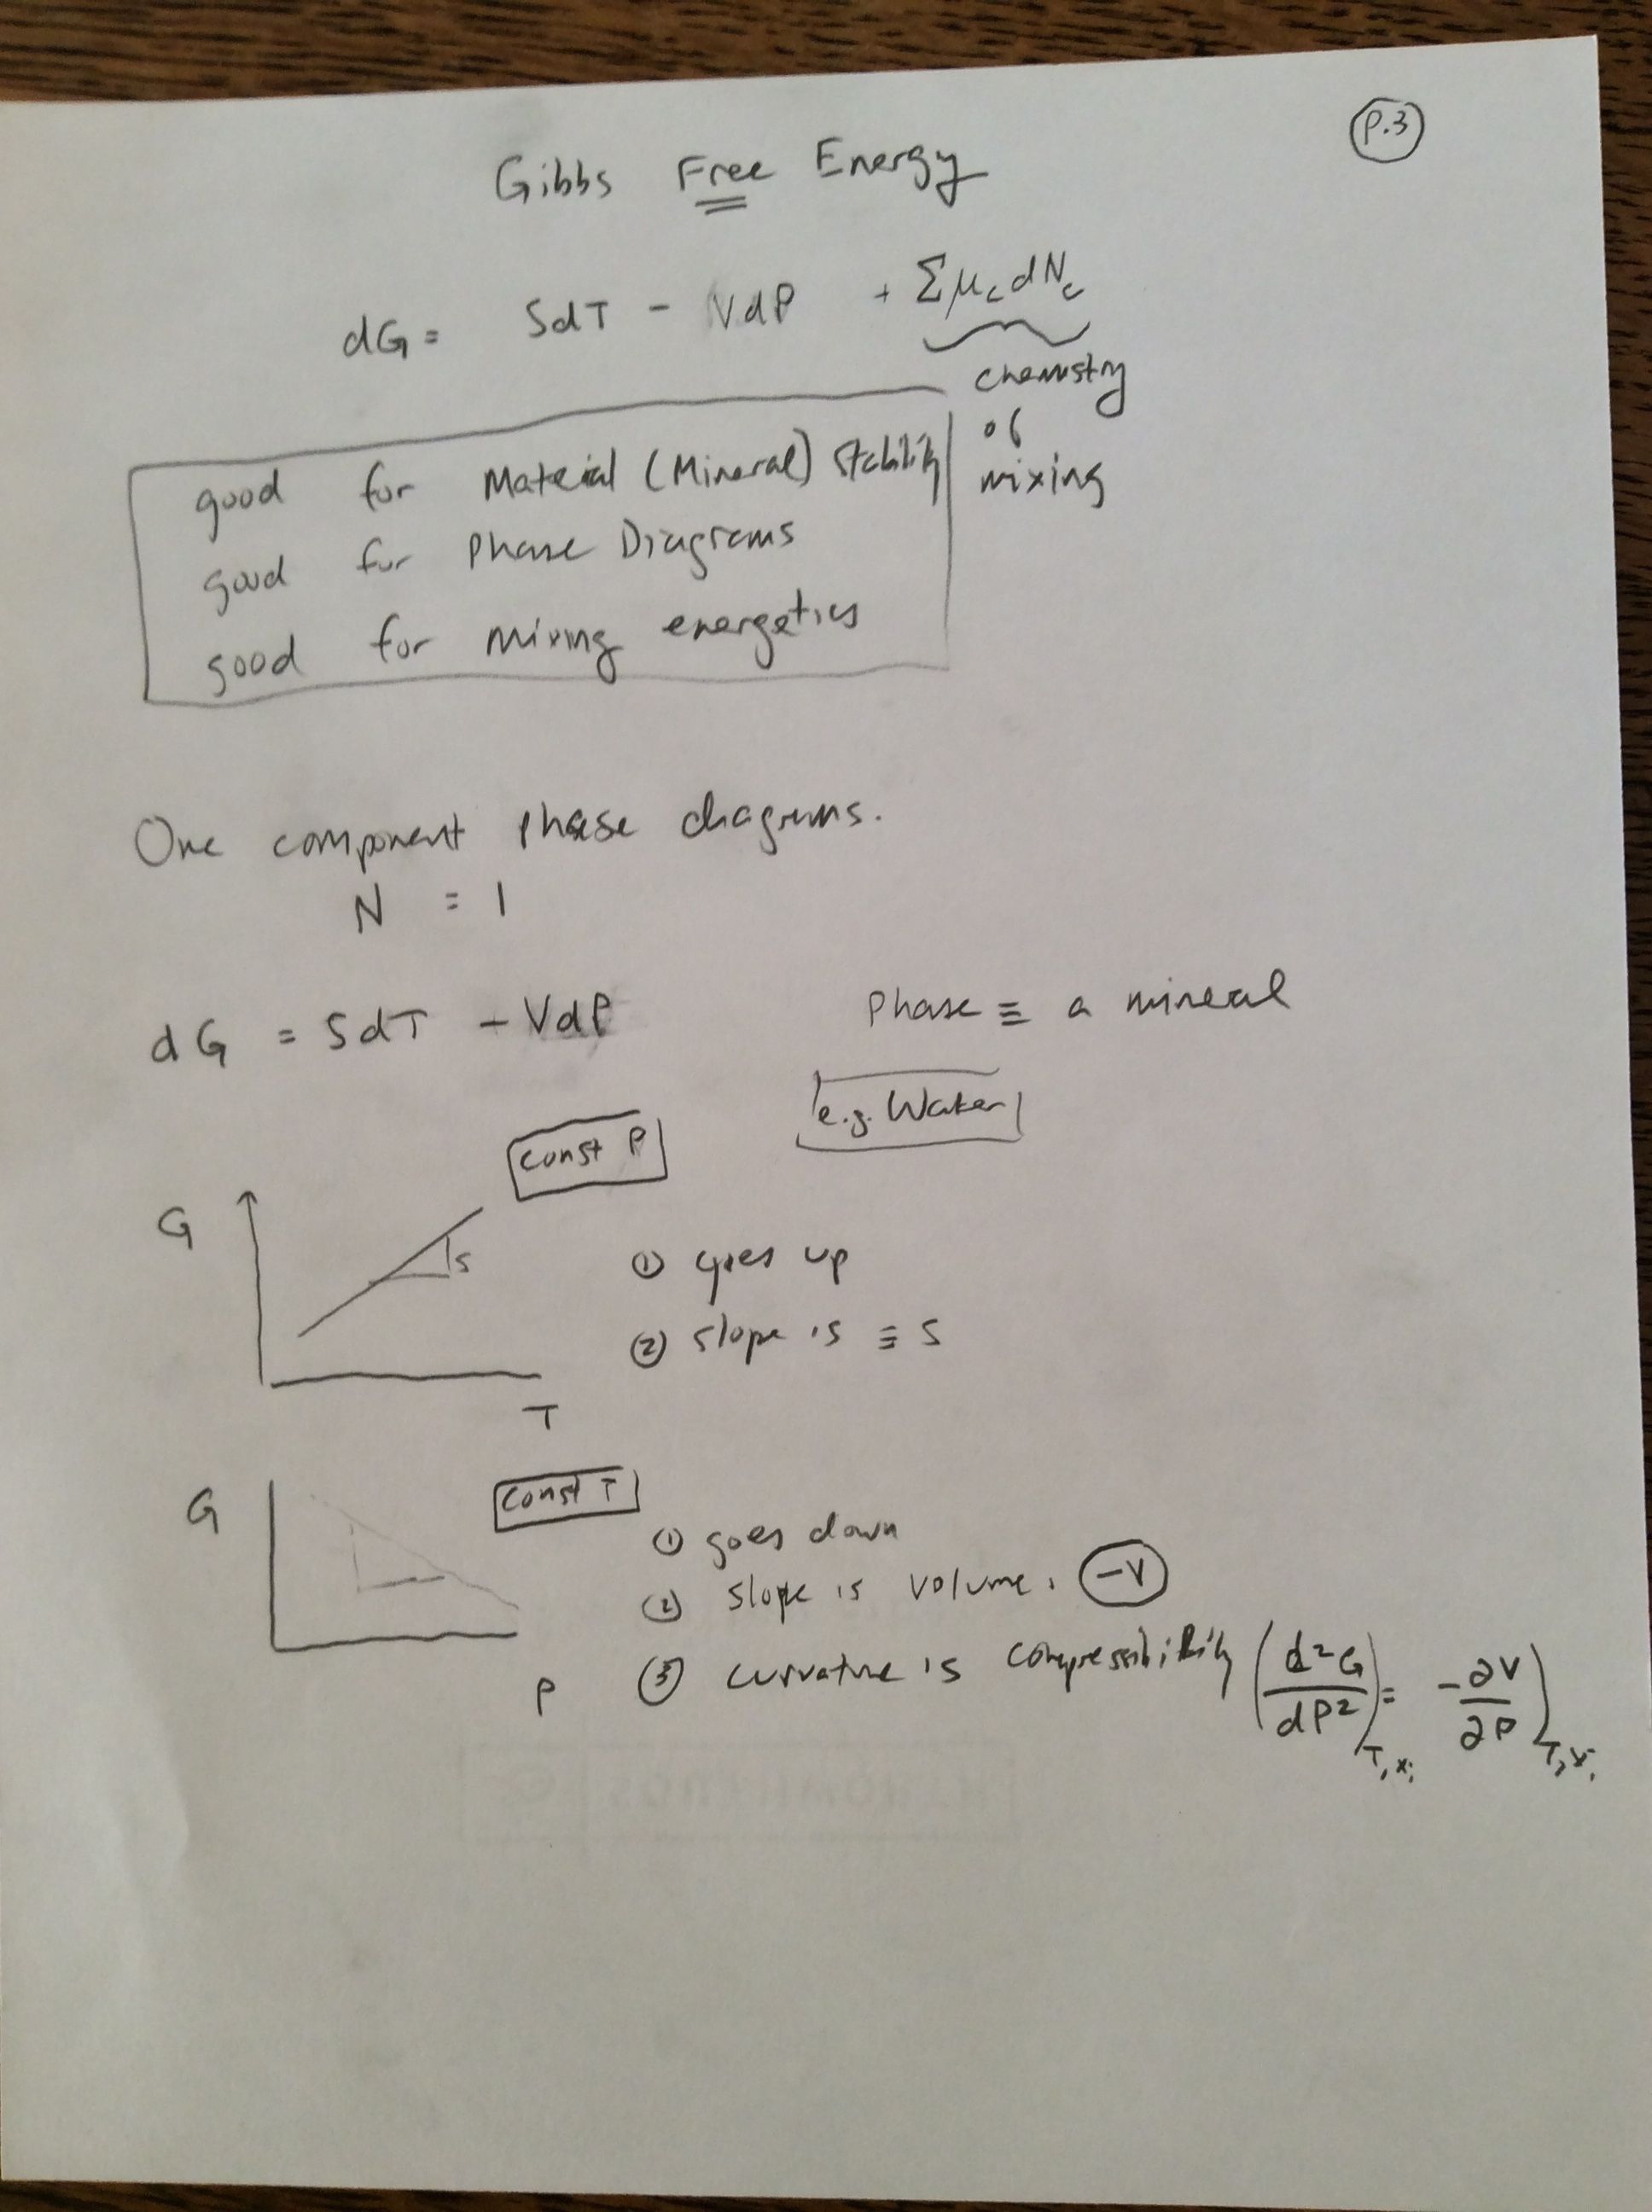 P.3
Gibbs Free Energy
dG = SdT - VdP + Σμ_c dN_c
chemistry
of
mixing
good for Material (Mineral) stability
good for Phase Diagrams
good for mixing energetics
One component phase diagrams.
N = 1
dG = SdT - VdP
Phase ≡ a mineral
e.g. Water
const P
G
S
T
① goes up
② slope is ≡ S
const T
G
P
① goes down
② slope is volume. -V
③ curvature is compressibility (d²G/dP²)_T,xᵢ = -∂V/∂P)_T,xᵢ